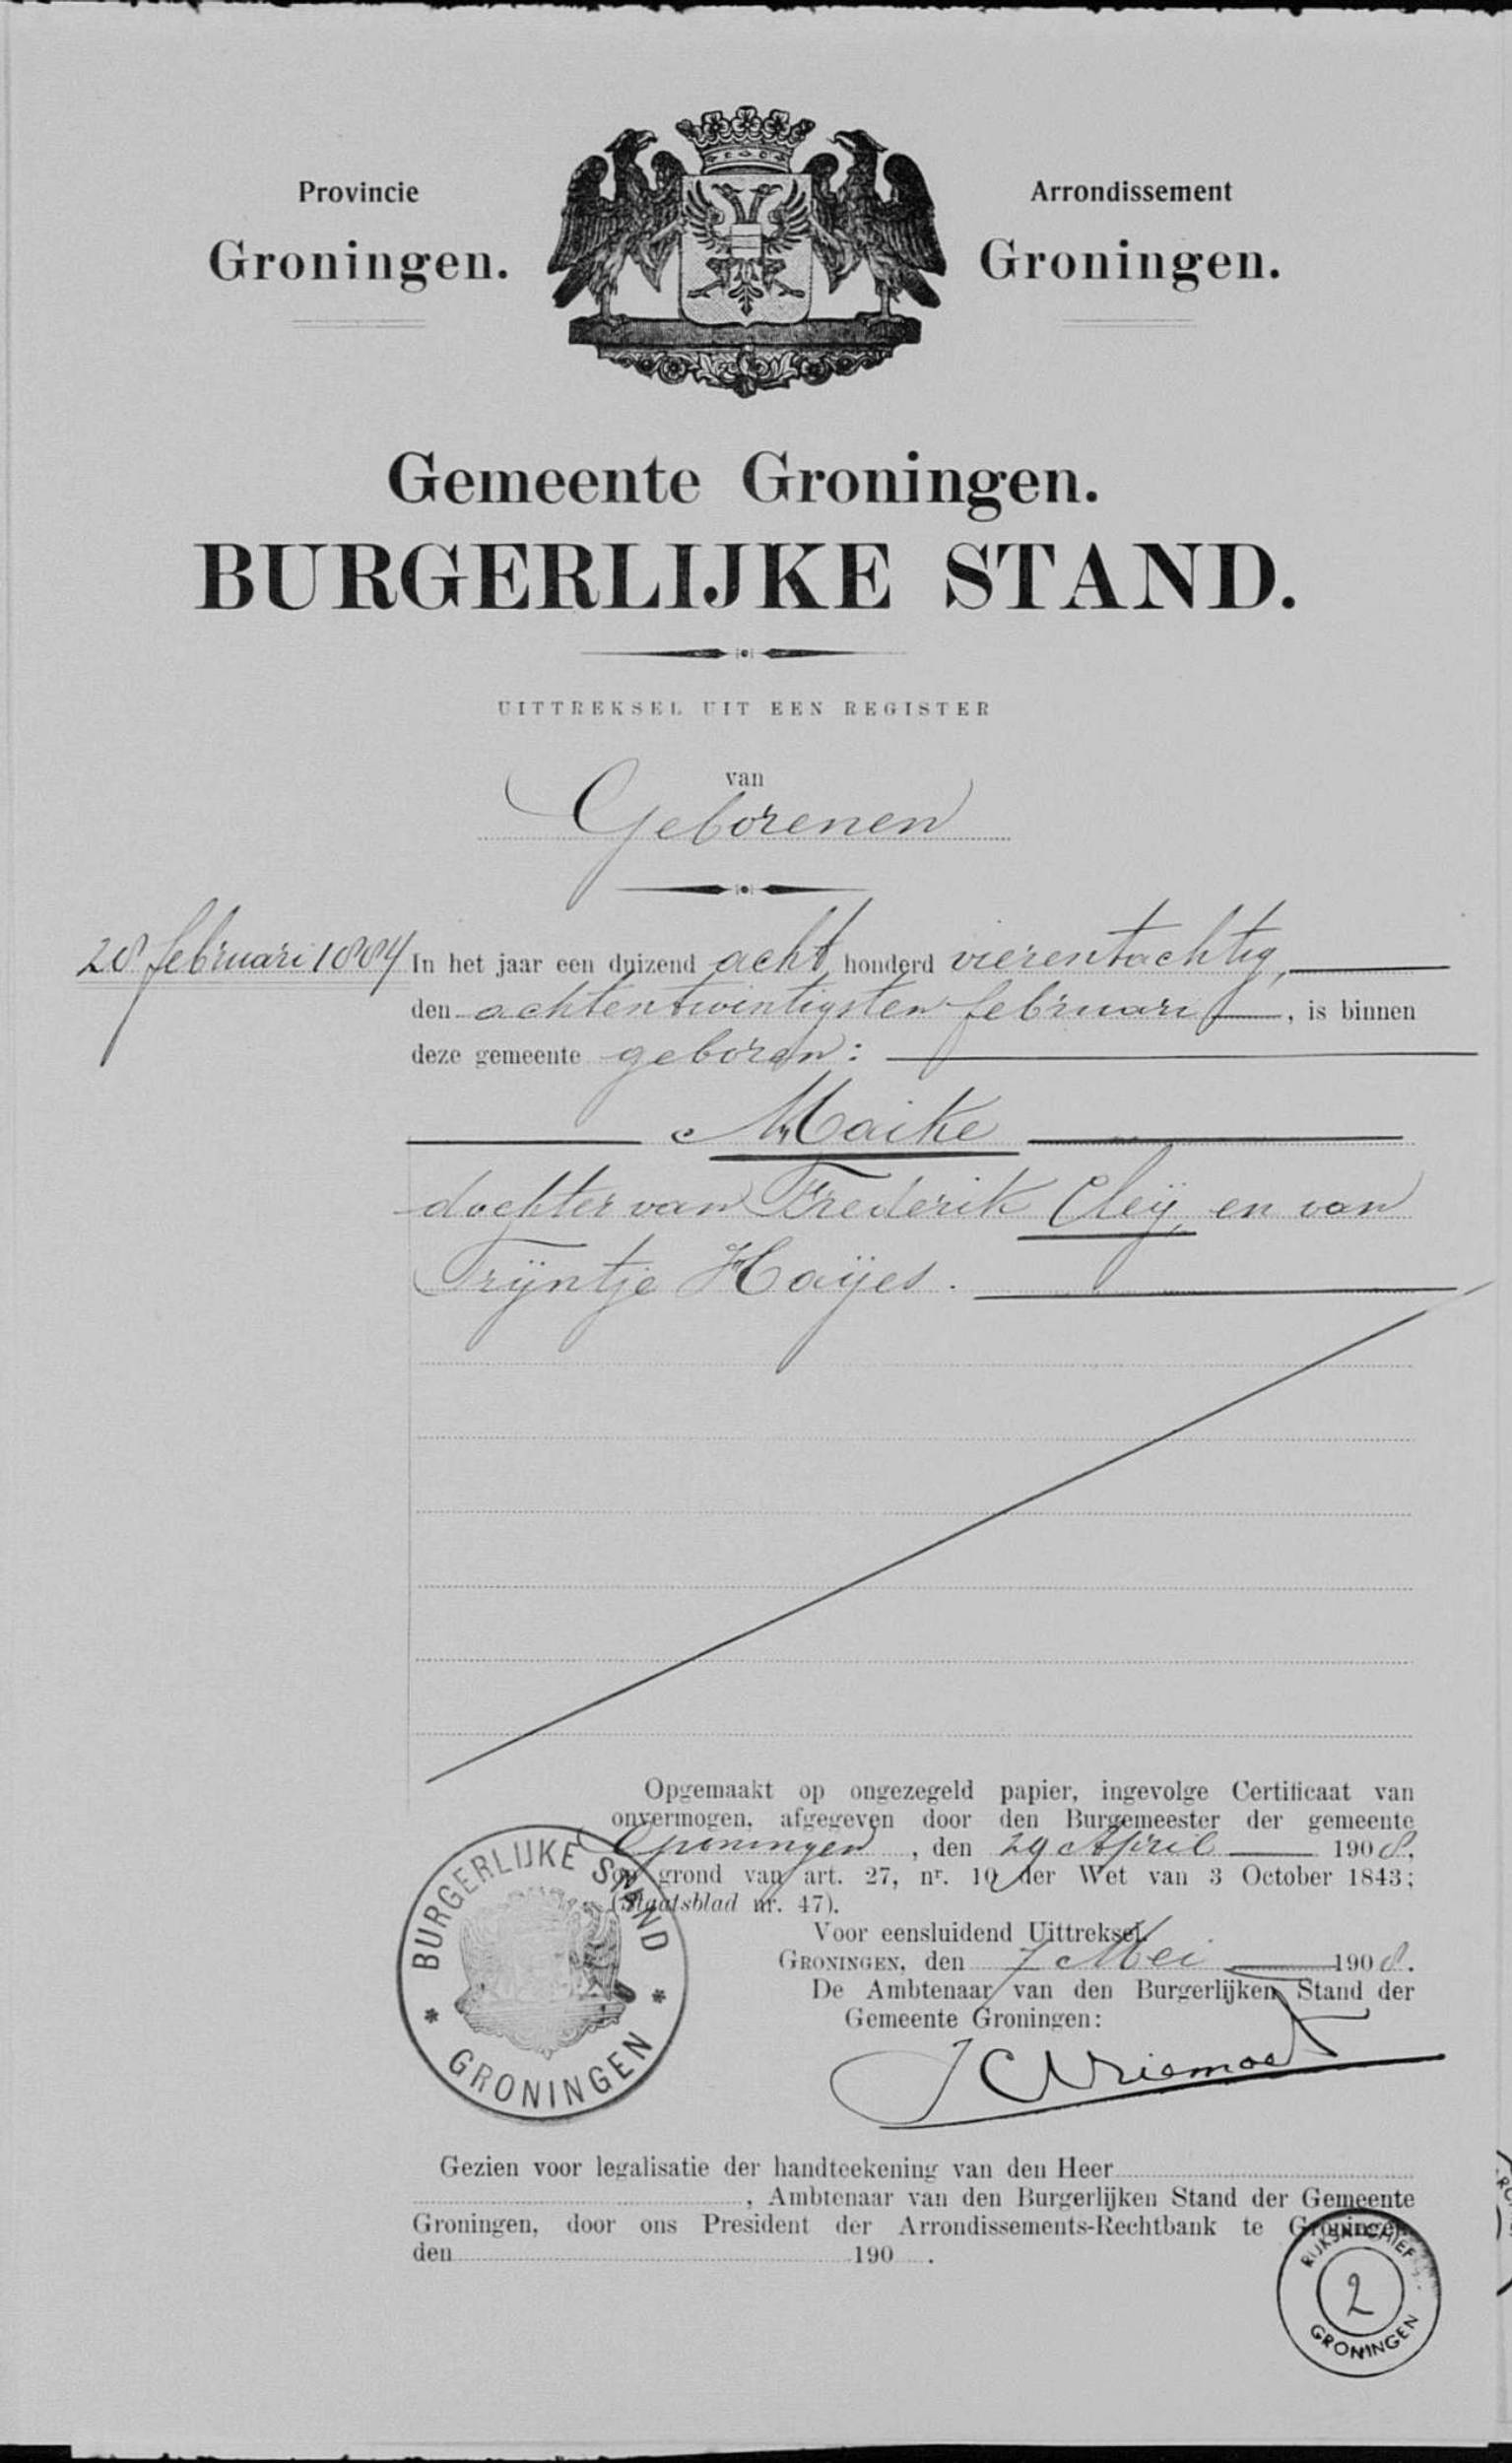 Provincie
Groningen.
Arrondissement
Groningen.
Gemeente Groningen.
BURGERLIJKE STAND.
UITTREKSEL UIT EEN REGISTER
van
Geborenen
28 februari 1884
In het jaar een duizend acht honderd vierentachtig,
den achtentwintigsten februari, is binnen
deze gemeente geboren:
Maike
dochter van Frederik Cleij, en van
Trijntje Haijes.
Opgemaakt op ongezegeld papier, ingevolge Certificaat van
onvermogen, afgegeven door den Burgemeester der gemeente
Groningen, den 29 April 1908,
op grond van art. 27, nr. 10 der Wet van 3 October 1843;
(Staatsblad nr. 47).
Voor eensluidend Uittreksel.
GRONINGEN, den 7 Mei 1908.
De Ambtenaar van den Burgerlijken Stand der
Gemeente Groningen:
BURGERLIJKE STAND
* GRONINGEN *
Gezien voor legalisatie der handteekening van den Heer
, Ambtenaar van den Burgerlijken Stand der Gemeente
Groningen, door ons President der Arrondissements-Rechtbank te Groningen
den 190 .
RIJKSARCHIEF
2
GRONINGEN